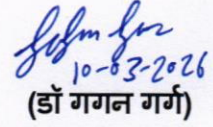 10-03-2026
(डॉ गगन गर्ग)